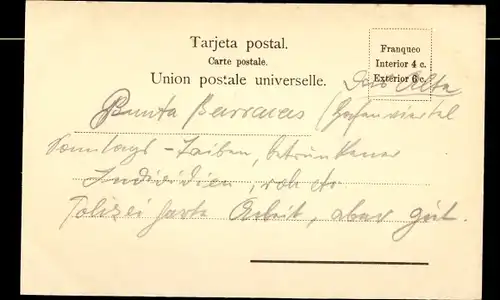 Tarjeta postal.
Carte postale.
Union postale universelle.
Franqueo
Interior 4 c.
Exterior 6 c.
Alta
Punta Barracas (Hafenviertel
Sonntags-Treiben, betrunkener
Individien, roh etc
Polizei harte Arbeit, aber gut.